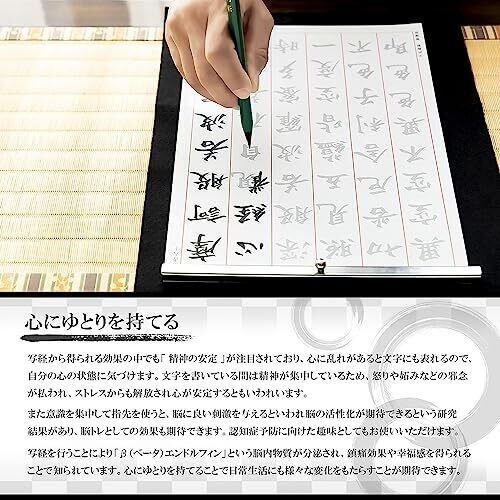 摩訶般若波
心経観自
深般若波羅蜜多時
心にゆとりを持てる
写経から得られる効果の中でも「 精神の安定 」が注目されており、心に乱れがあると文字にも表れるので、
自分の心の状態に気づけます。文字を書いている間は精神が集中しているため、怒りや妬みなどの邪念
が払われ、ストレスからも解放され心が安定するともいわれいます。
また意識を集中して指先を使うと、脳に良い刺激を与えるといわれ脳の活性化が期待できるという研究
結果があり、脳トレとしての効果も期待できます。認知症予防に向けた趣味としてもお使いいただけます。
写経を行うことにより「 β (ベータ)エンドルフィン 」という脳内物質が分泌され、鎮痛効果や幸福感を得られる
ことで知られています。心にゆとりを持てることで日常生活にも様々な変化をもたらすことが期待できます。